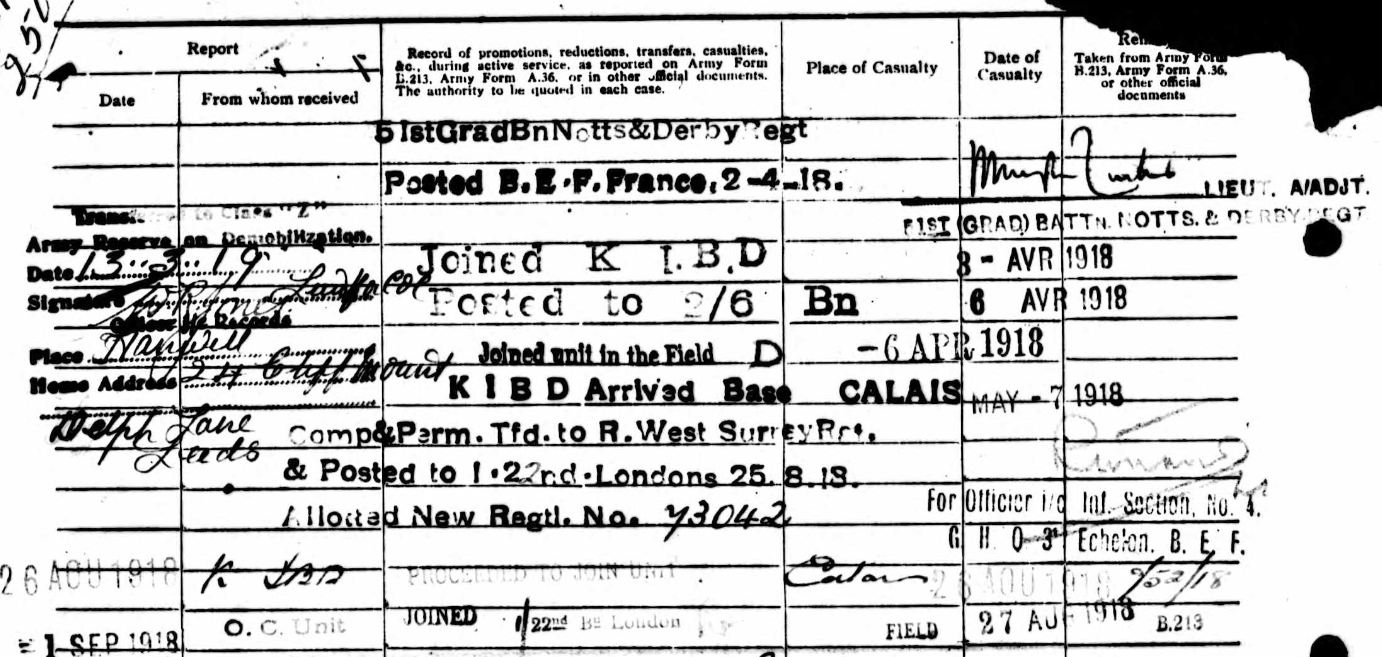 Report
Date
From whom received
Record of promotions, reductions, transfers, casualties,
&c., during active service, as reported on Army Form
B.213, Army Form A.36, or in other official documents.
The authority to be quoted in each case.
Place of Casualty
Date of
Casualty
Taken from Army Form
B.213, Army Form A.36,
or other official
documents
51st Grad Bn Notts & Derby Regt
Posted B.E.F. France, 2-4-18.
LIEUT. A/ADJT.
51ST (GRAD) BATTN. NOTTS. & DERBY REGT
to Class "Z"
Army Reserve on Demobilization.
Date 13-3-19
Signature
Officer i/c Records
Place
Home Address 24 Cliff Mount
Delph Lane
Leeds
Joined K I.B.D
- AVR 1918
Posted to 2/6 Bn
6 AVR 1918
Joined unit in the Field D
-6 APR 1918
K I B D Arrived Base CALAIS
MAY -7 1918
Comp & Perm. Tfd. to R. West Surrey Rgt.
& Posted to 1.22nd. Londons 25.8.18.
Allotted New Regtl. No. 73042
For Officier i/c Inf. Section, No. 4.
G H Q 3rd Echelon, B. E. F.
26 AOU 1918
K IBD
PROCEEDED TO JOIN UNIT
Calais
26 AOU 1918
1 SEP 1918
O. C. Unit
JOINED 1/22nd Bn London
FIELD
27 AUG 1918
B.213